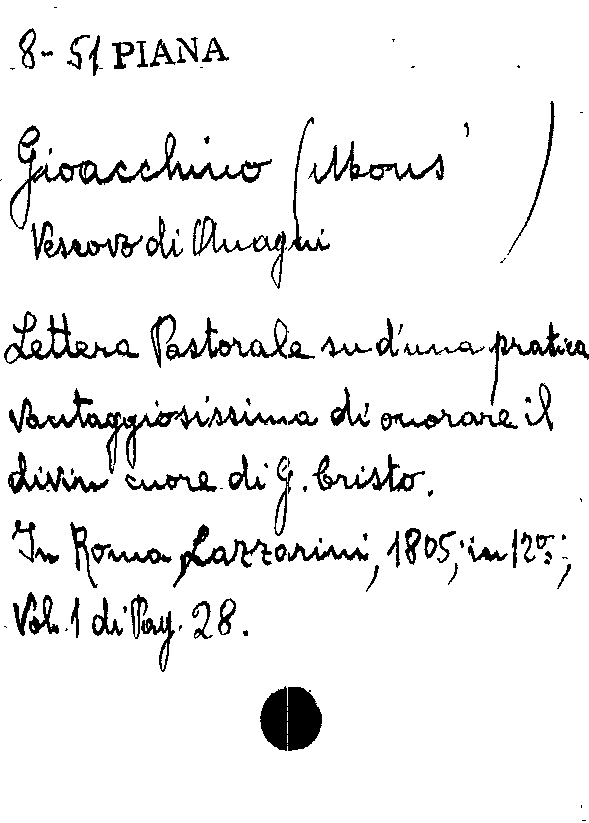 8-51 PIANA
Gioacchino (Mons' )
Vescovo di Anagni
Lettera Pastorale su d'una pratica
vantaggiosissima di onorare il
divin cuore di G. Cristo.
In Roma, Lazzarini, 1805; in 12º;
Vol. 1 di Pag. 28.